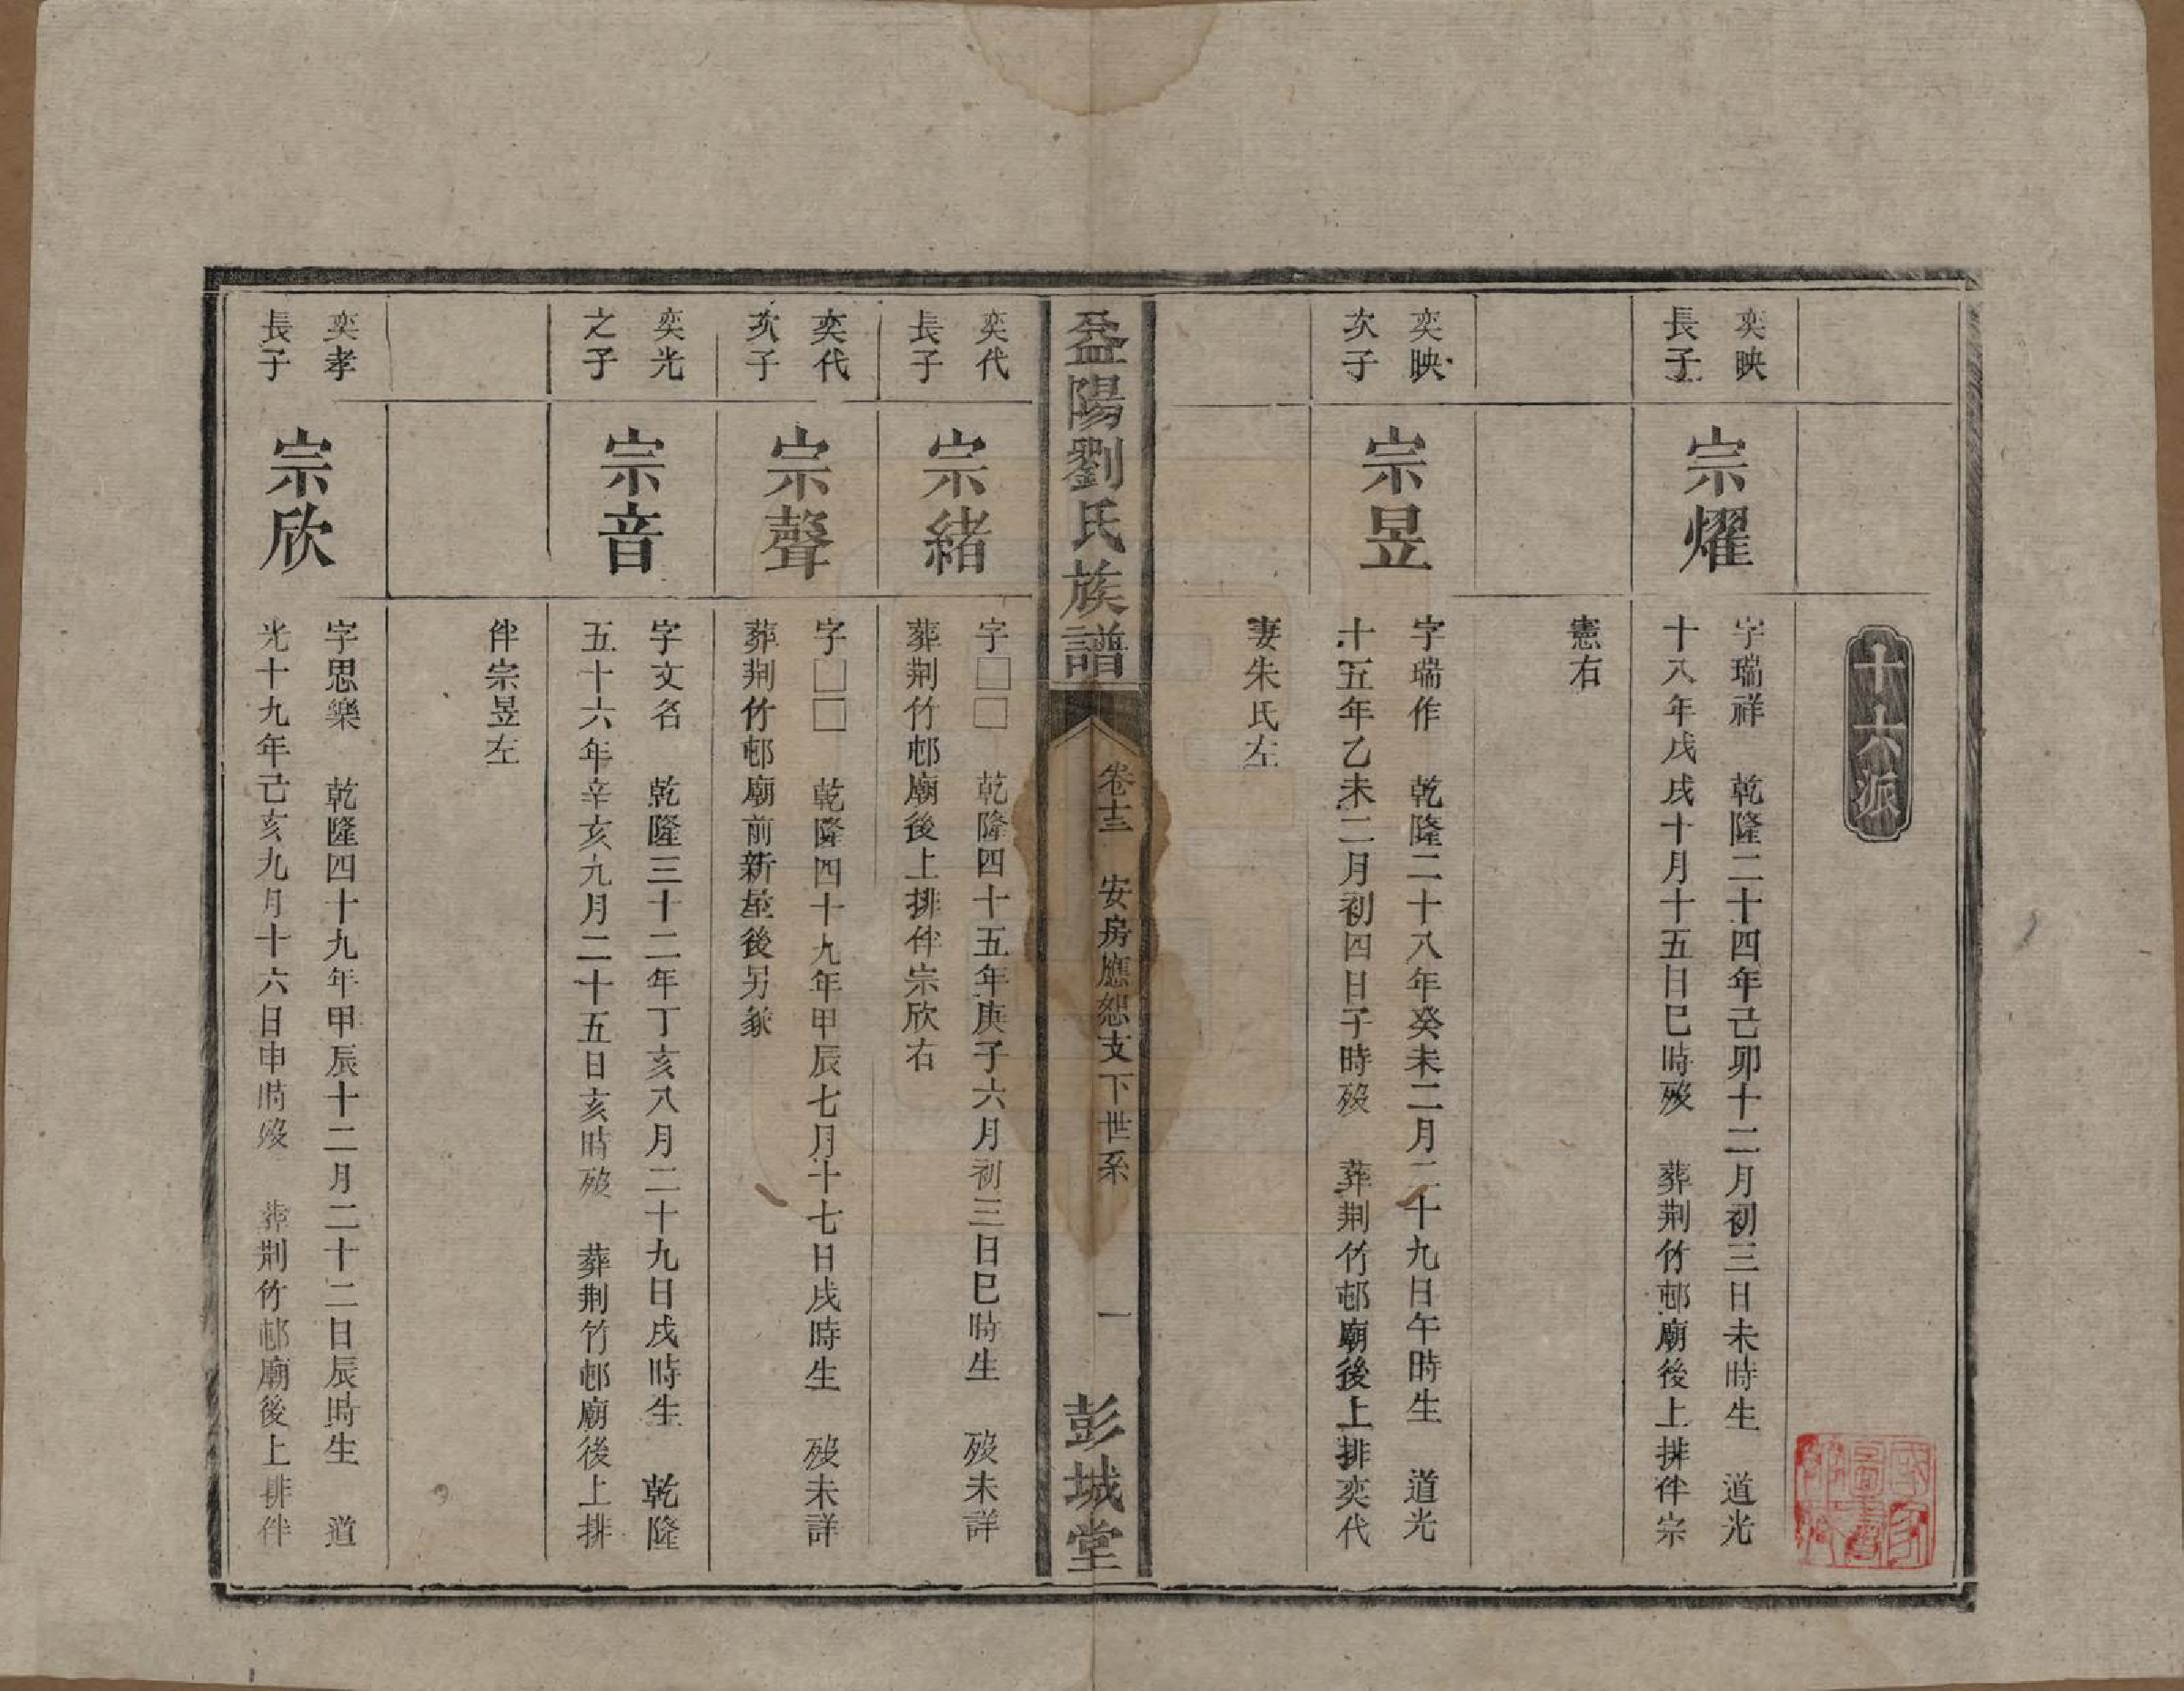 十六派
奕映
長子
宗燿
字瑞祥　乾隆二十四年己卯十二月初三日未時生　道光
十八年戊戌十月十五日巳時歿　葬荆竹邨廟後上排伴宗
憲右
奕映
次子
宗昱
字瑞作　乾隆二十八年癸未二月二十九日午時生　道光
十五年乙未二月初四日子時歿　葬荆竹邨廟後上排奕代
妻朱氏左
益陽劉氏族譜
卷十三　安房應恕支下世系
一
彭城堂
奕代
長子
宗緒
字□□　乾隆四十五年庚子六月初三日巳時生　歿未詳
葬荆竹邨廟後上排伴宗欣右
奕代
次子
宗聲
字□□　乾隆四十九年甲辰七月十七日戌時生　歿未詳
葬荆竹邨廟前新塋後另冢
奕光
之子
宗音
字文名　乾隆三十二年丁亥八月二十九日戌時生　乾隆
五十六年辛亥九月二十五日亥時歿　葬荆竹邨廟後上排
伴宗昱左
奕孝
長子
宗欣
字思樂　乾隆四十九年甲辰十二月二十二日辰時生　道
光十九年己亥九月十六日申時歿　葬荆竹邨廟後上排伴